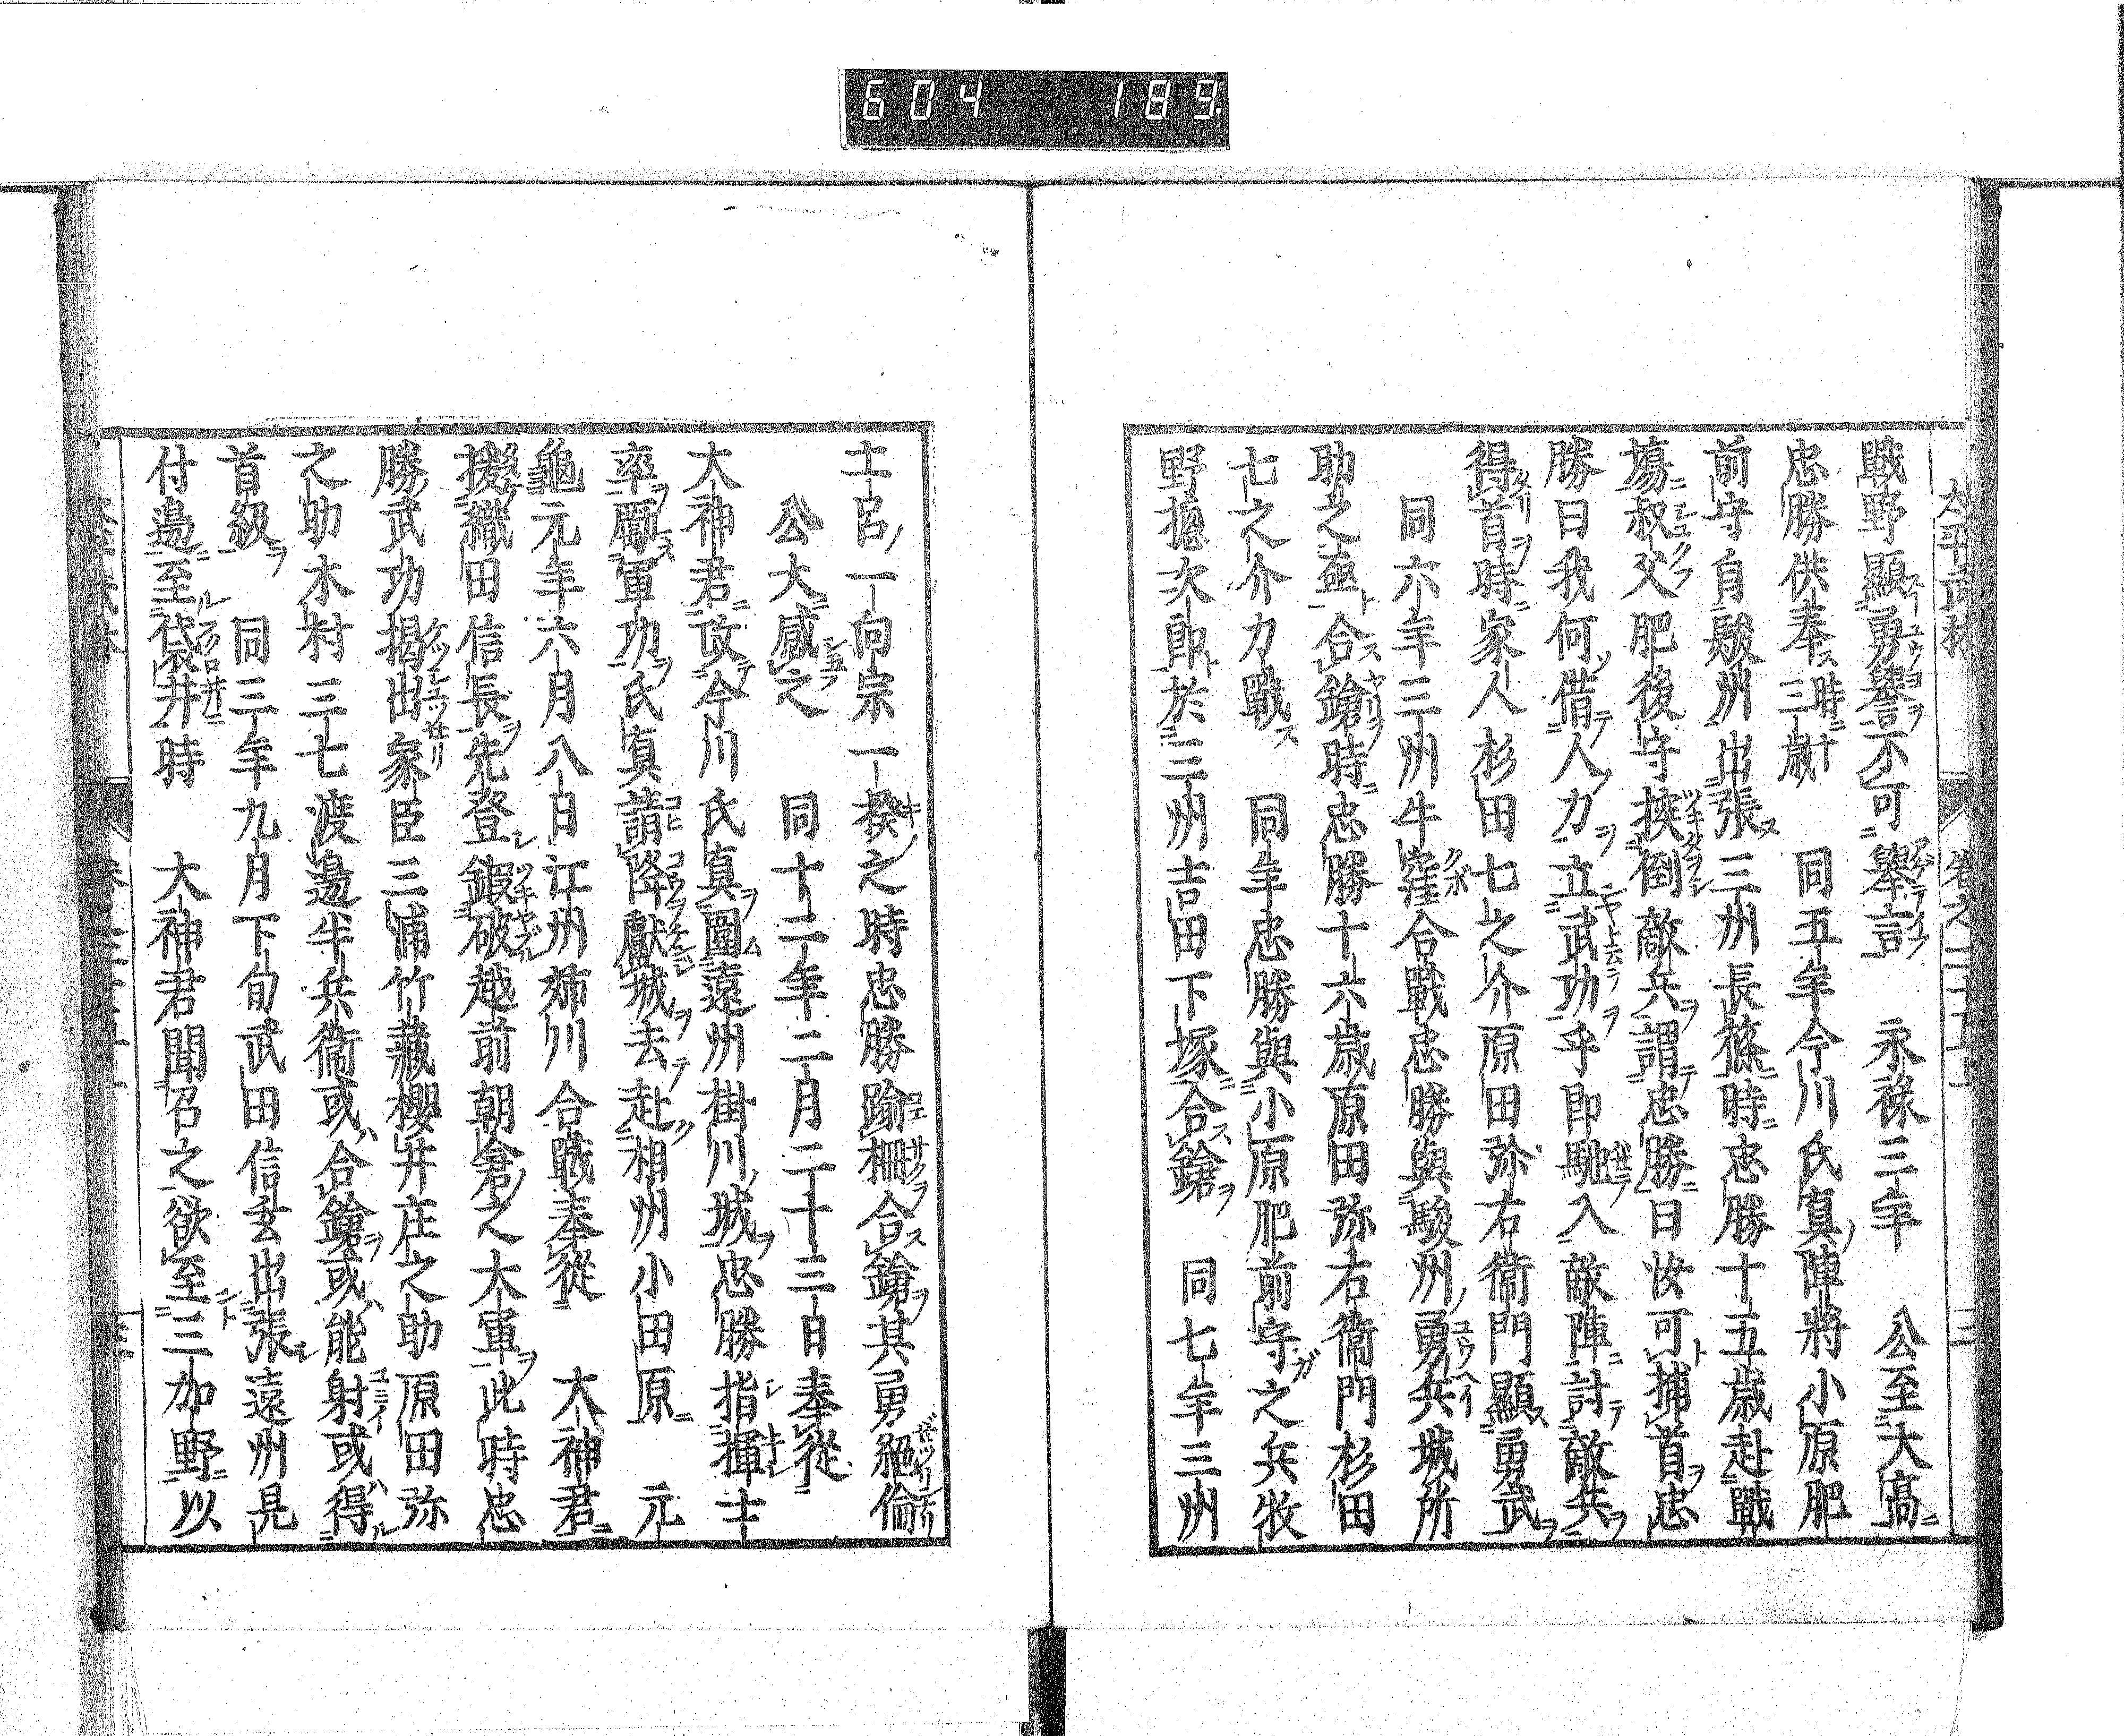 604 189.
太平武林
卷之二十五上
三
戰野顯勇譽不可舉言　永祿三年　公至大高
忠勝供奉時十三歲　同五年今川氏真陣將小原肥
前守自駿州出張三州長篠時忠勝十五歲赴戰
場叔父肥後守挾倒敵兵謂忠勝曰汝可捕首忠
勝曰我何借人力立武功乎即馳入敵陣討敵兵
得首時家人杉田七之介原田弥右衞門顯勇武
同六年三州牛窪合戰忠勝與駿州勇兵城所
助之亟合鎗時忠勝十六歲原田弥右衞門杉田
七之介力戰　同年忠勝與小原肥前守之兵牧
野摠次郎於三州吉田下塚合鎗　同七年三州
土呂一向宗一揆之時忠勝踰柵合鎗其勇絕倫
公大感之　同十二年二月二十三日奉從
大神君攻今川氏真圍遠州掛川城忠勝指揮士
率勵軍功氏真請降獻城去赴相州小田原　元
龜元年六月八日江州姉川合戰奉從　大神君
援織田信長先登鍛破越前朝倉之大軍此時忠
勝武功揭出家臣三浦竹藏櫻井庄之助原田弥
之助木村三七渡邉半兵衞或合鎗或能射或得
首級　同三年九月下旬武田信玄出張遠州見
付邉至袋井時　大神君聞召之欲至三加野以